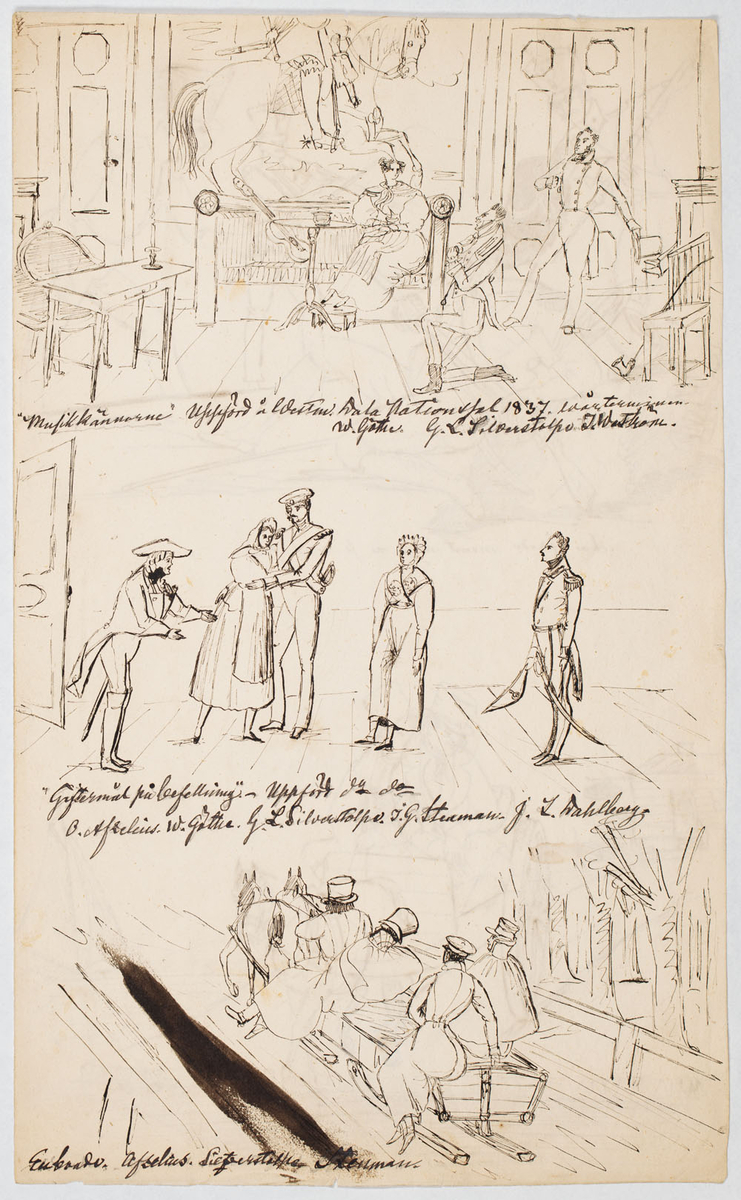 "Musikkännarne" Uppförd å Westm. Dala Nationssal 1837. wårterminen
W. Göthe. G. L. Silverstolpe. J. Westrom.
"Giftermål på befallning" – Uppförd do do
O. Afzelius. W. Göthe. G. L. Silverstolpe. J. G. Stenman. J. L. Wahlberg
Afzelius. Silfverstolpe Stenman